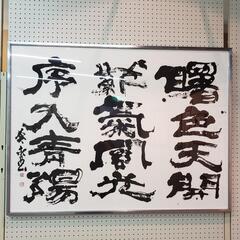 曙色天開
氣風光
序入青陽